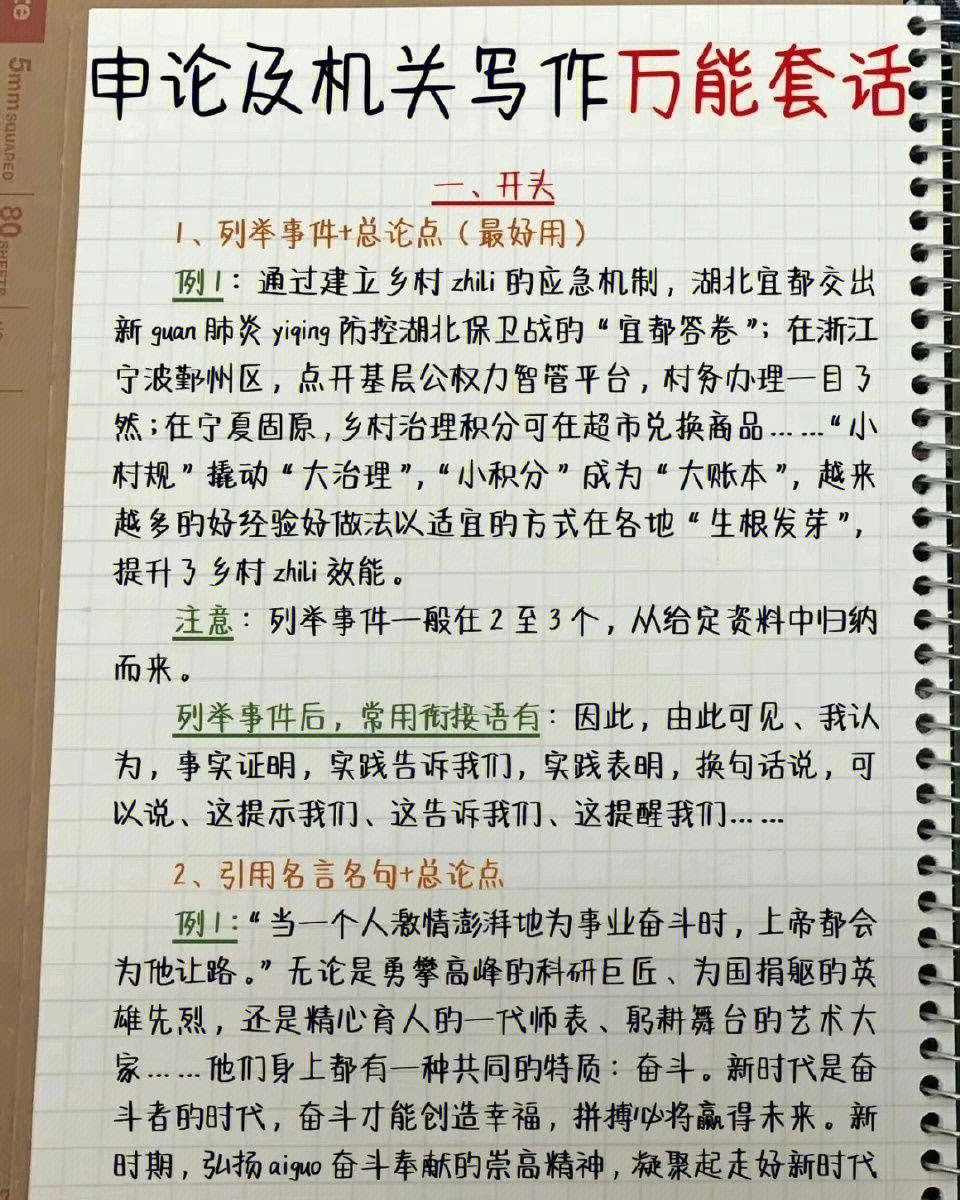 申论及机关写作万能套话
一、开头
1、列举事件+总论点（最好用）
例1：通过建立乡村zhili的应急机制，湖北宜都交出
新guan肺炎yiqing防控湖北保卫战的“宜都答卷”；在浙江
宁波鄞州区，点开基层公权力智管平台，村务办理一目了
然；在宁夏固原，乡村治理积分可在超市兑换商品……“小
村规”撬动“大治理”，“小积分”成为“大账本”，越来
越多的好经验好做法以适宜的方式在各地“生根发芽”，
提升了乡村zhili效能。
注意：列举事件一般在2至3个，从给定资料中归纳
而来。
列举事件后，常用衔接语有：因此，由此可见、我认
为，事实证明，实践告诉我们，实践表明，换句话说，可
以说、这提示我们、这告诉我们、这提醒我们……
2、引用名言名句+总论点
例1：“当一个人激情澎湃地为事业奋斗时，上帝都会
为他让路。”无论是勇攀高峰的科研巨匠、为国捐躯的英
雄先烈，还是精心育人的一代师表、躬耕舞台的艺术大
家……他们身上都有一种共同的特质：奋斗。新时代是奋
斗者的时代，奋斗才能创造幸福，拼搏必将赢得未来。新
时期，弘扬aiguo奋斗奉献的崇高精神，凝聚起走好新时代
5mm SQUARED
80
SHEETS